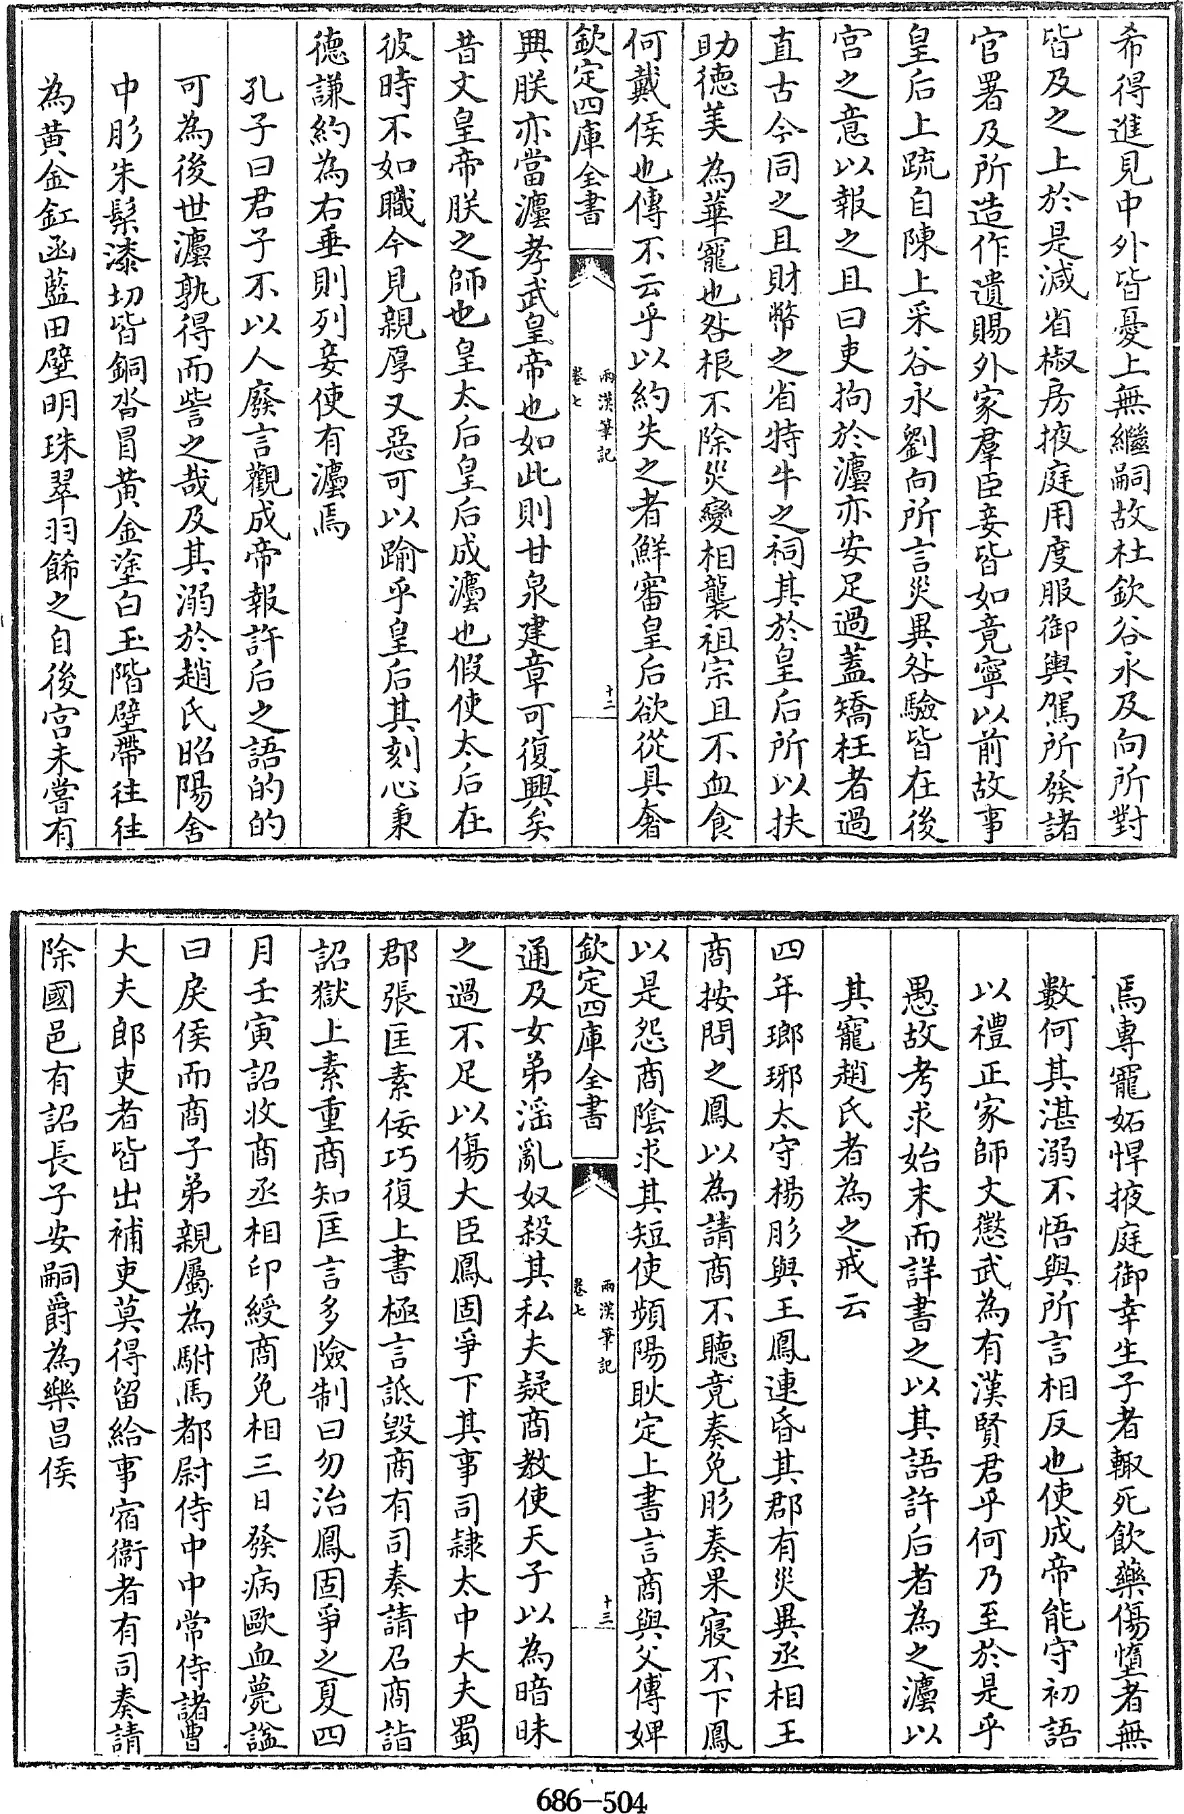 希得進見中外皆憂上無繼嗣故杜欽谷永及向所對
皆及之上於是減省椒房掖庭用度服御輿駕所發諸
官署及所造作遺賜外家羣臣妾皆如竟寧以前故事
皇后上疏自陳上采谷永劉向所言災異咎驗皆在後
宮之意以報之且曰吏拘於灋亦安足過蓋矯枉者過
直古今同之且財幣之省特牛之祠其於皇后所以扶
助德美為華寵也咎根不除災變相襲祖宗且不血食
何戴侯也傳不云乎以約失之者鮮審皇后欲從其奢
欽定四庫全書
兩漢筆記
卷七
十二
與朕亦當灋孝武皇帝也如此則甘泉建章可復興矣
昔文皇帝朕之師也皇太后皇后成灋也假使太后在
彼時不如職今見親厚又惡可以踰乎皇后其刻心秉
德謙約為右垂則列妾使有灋焉
孔子曰君子不以人廢言觀成帝報許后之語的的
可為後世灋孰得而訾之哉及其溺於趙氏昭陽舍
中彤朱髹漆切皆銅沓冒黄金塗白玉階壁帶往往
為黄金釭函藍田壁明珠翠羽飾之自後宮未嘗有
焉專寵妬悍掖庭御幸生子者輒死飲藥傷墮者無
數何其湛溺不悟與所言相反也使成帝能守初語
以禮正家師文懲武為有漢賢君乎何乃至於是乎
愚故考求始末而詳書之以其語許后者為之灋以
其寵趙氏者為之戒云
四年瑯琊太守楊肜與王鳳連昏其郡有災異丞相王
商按問之鳳以為請商不聽竟奏免肜奏果寢不下鳳
以是怨商陰求其短使頻陽耿定上書言商與父傅婢
欽定四庫全書
兩漢筆記
卷七
十三
通及女弟淫亂奴殺其私夫疑商教使天子以為暗昧
之過不足以傷大臣鳳固爭下其事司隸太中大夫蜀
郡張匡素佞巧復上書極言詆毀商有司奏請召商詣
詔獄上素重商知匡言多險制曰勿治鳳固爭之夏四
月壬寅詔收商丞相印綬商免相三日發病歐血薨諡
曰戾侯而商子弟親屬為駙馬都尉侍中中常侍諸曹
大夫郎吏者皆出補吏莫得留給事宿衞者有司奏請
除國邑有詔長子安嗣爵為樂昌侯
686-504